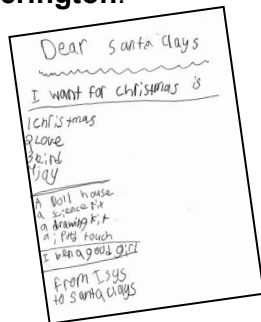 erington!
Dear santa clays
I want for christmas is
1 christmas
2 Love
3 eind
4 jay
A Doll house
a science kit
a drawing kit
a ipod touch
I ben a good girl
from Isys
to santa clays